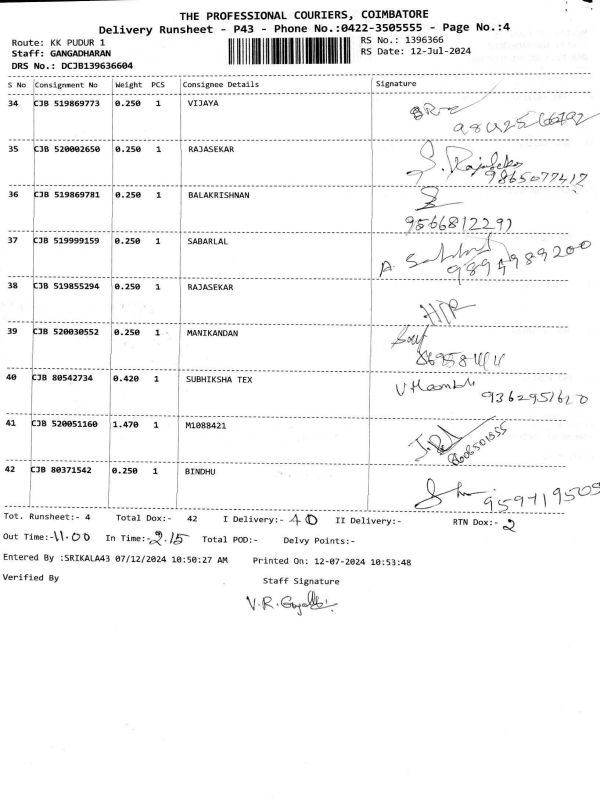 THE PROFESSIONAL COURIERS, COIMBATORE
Delivery Runsheet - P43 - Phone No.:0422-3505555 - Page No.:4
Route: KK PUDUR 1
Staff: GANGADHARAN
DRS No.: DCJB139636604
RS No.: 1396366
RS Date: 12-Jul-2024
S No Consignment No Weight PCS Consignee Details Signature
34 CJB 519869773 0.250 1 VIJAYA
35 CJB 520002650 0.250 1 RAJASEKAR S. Rajasekar
9865077417
36 CJB 519869781 0.250 1 BALAKRISHNAN
9566812291
37 CJB 519999159 0.250 1 SABARLAL A.
9894989200
38 CJB 519855294 0.250 1 RAJASEKAR
39 CJB 520030552 0.250 1 MANIKANDAN
40 CJB 80542734 0.420 1 SUBHIKSHA TEX
9362951620
41 CJB 520051160 1.470 1 M1088421
42 CJB 80371542 0.250 1 BINDHU
9597119505
Tot. Runsheet:- 4 Total Dox:- 42 I Delivery:- 40 II Delivery:- RTN Dox:- 2
Out Time:-11.00 In Time:-2.15 Total POD:- Delvy Points:-
Entered By :SRIKALA43 07/12/2024 10:50:27 AM Printed On: 12-07-2024 10:53:48
Verified By Staff Signature
V.R.